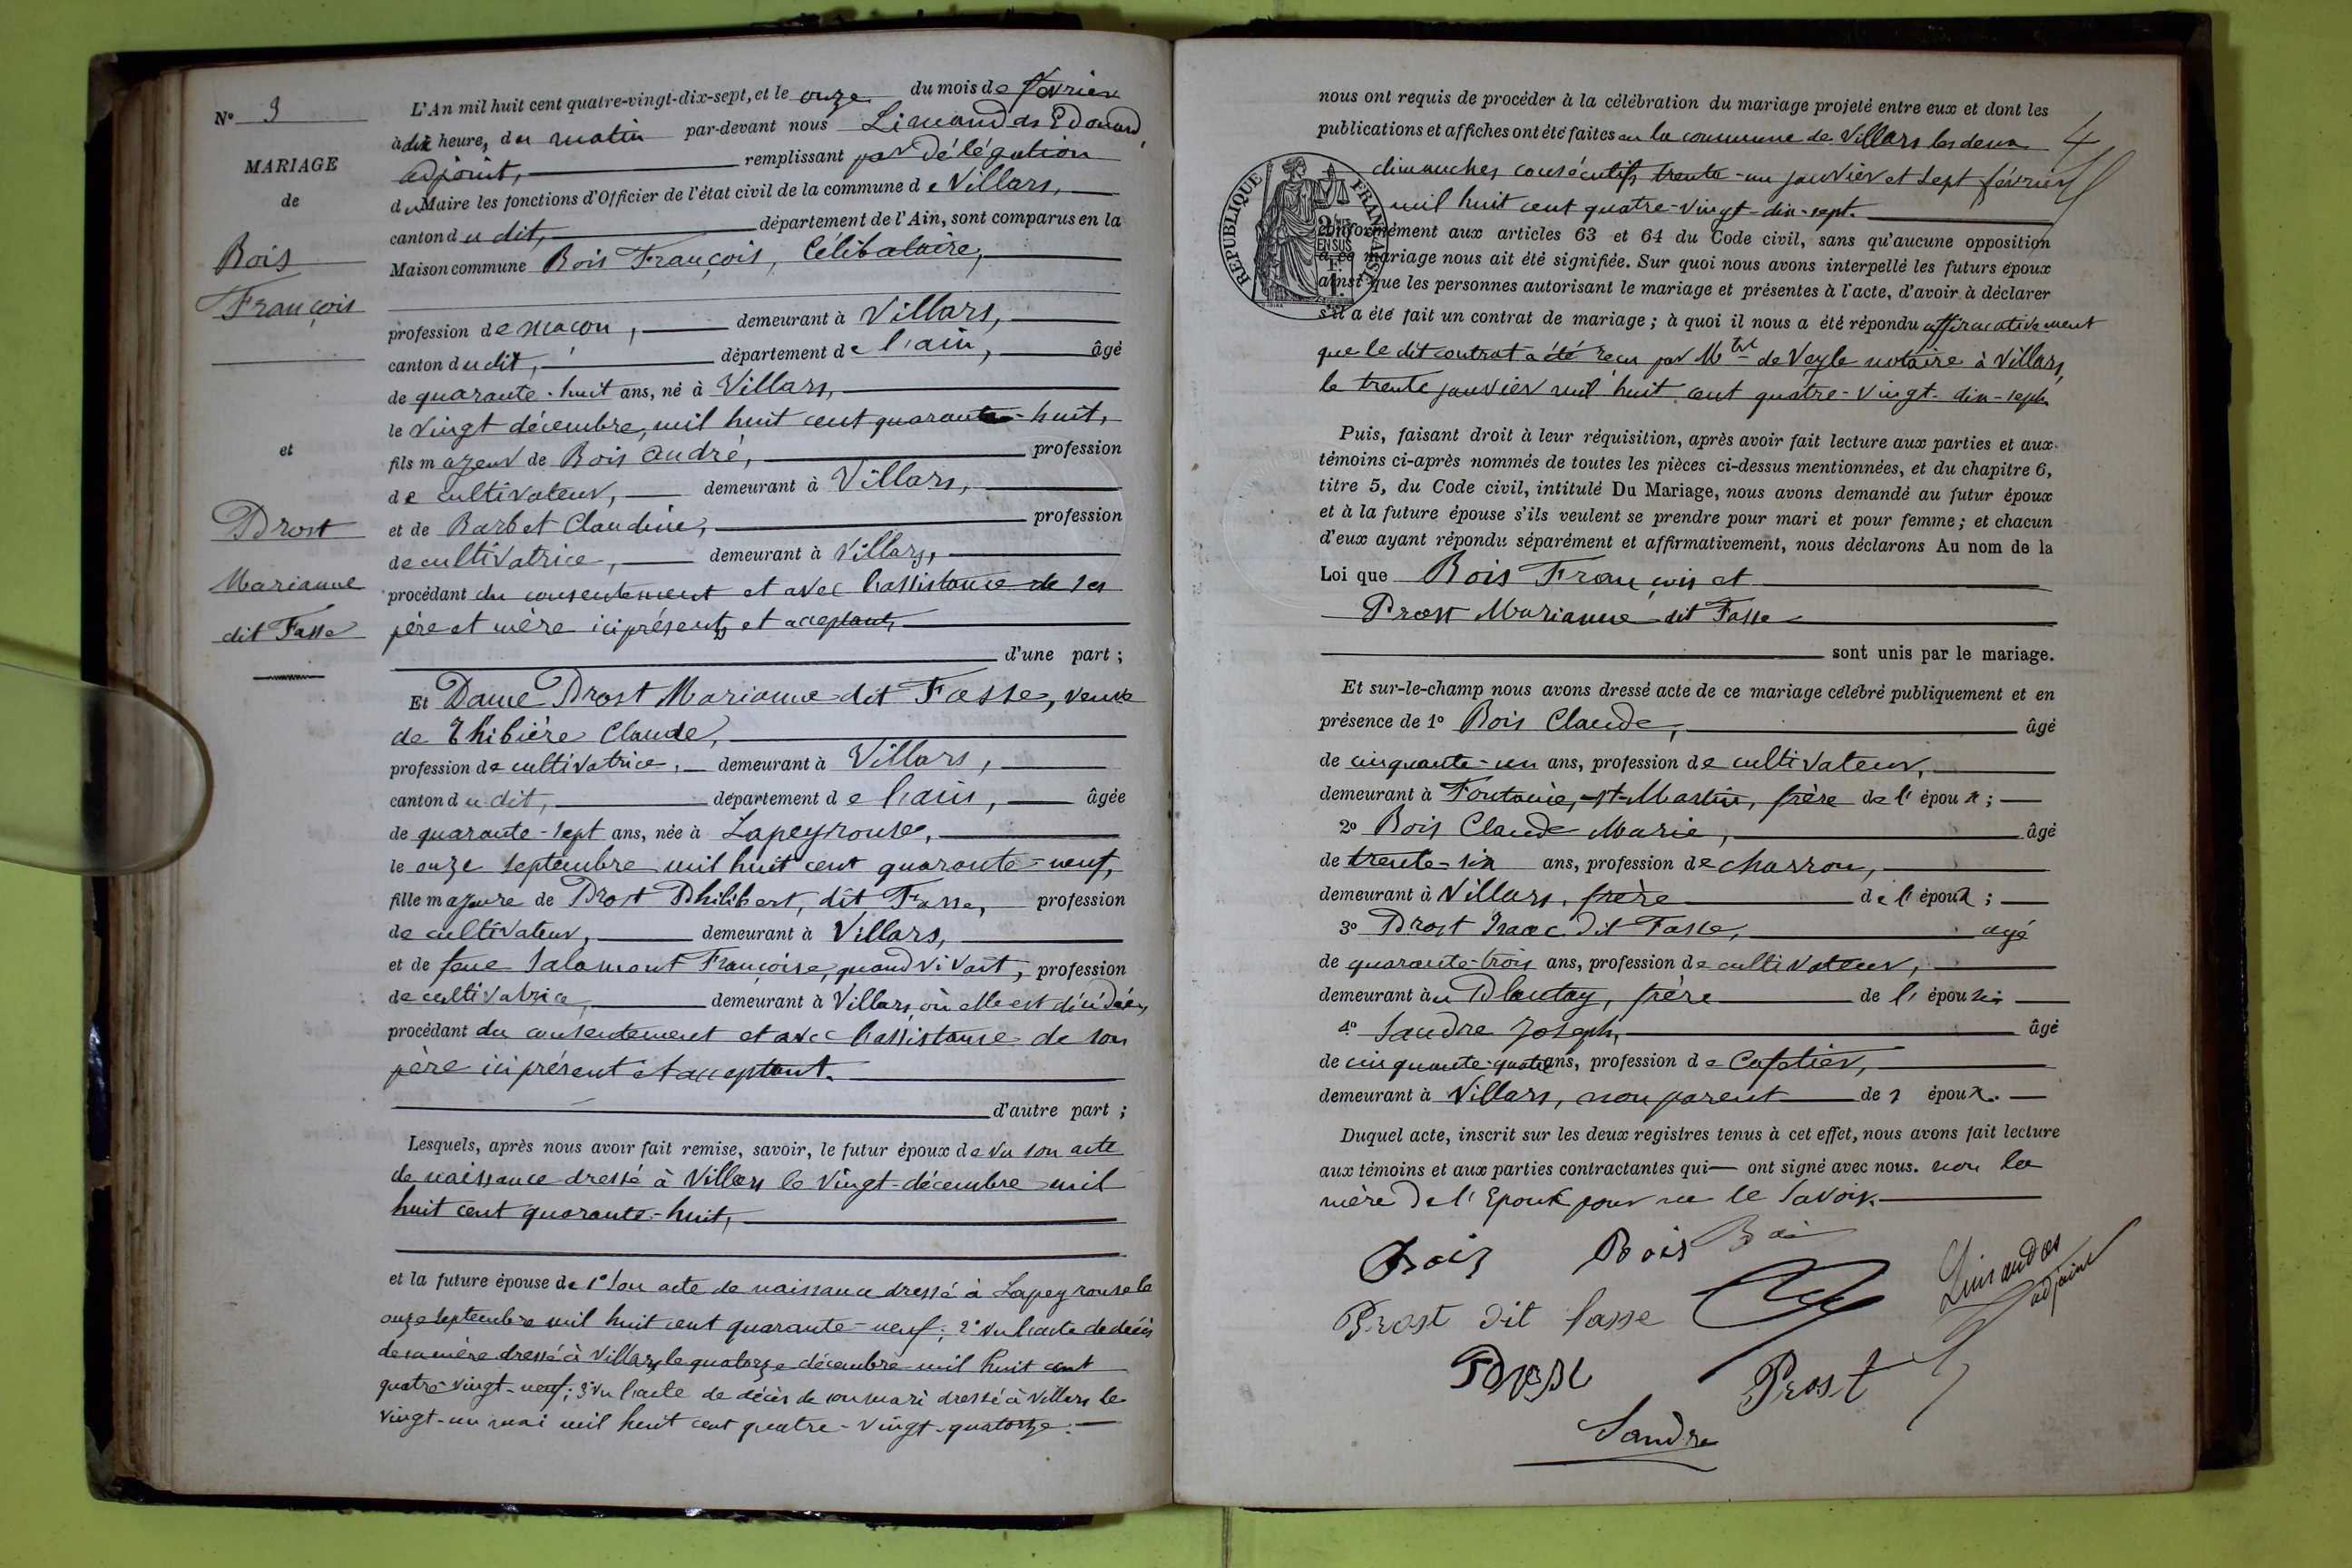 N° 3
MARIAGE
de
Bois
François
et
Prost
Marianne
dit Fasse
L'An mil huit cent quatre-vingt-dix-sept, et le onze du mois de février
à dix heure, du matin par-devant nous Limandas Edouard,
adjoint, remplissant par délégation
du Maire les fonctions d'Officier de l'état civil de la commune de Villars,
canton du dit, département de l'Ain, sont comparus en la
Maison commune Bois François, Célibataire,
profession de maçon, demeurant à Villars,
canton du dit, département de l'ain, âgé
de quarante-huit ans, né à Villars,
le vingt décembre, mil huit cent quarante-huit,
fils majeur de Bois André, profession
de cultivateur, demeurant à Villars,
et de Barbet Claudine, profession
de cultivatrice, demeurant à Villars,
procédant du consentement et avec l'assistance de ses
père et mère ici présents et acceptant,
d'une part ;
Et Dame Prost Marianne dit Fasse, veuve
de Thibière Claude,
profession de cultivatrice, demeurant à Villars,
canton du dit, département de l'ain, âgée
de quarante-sept ans, née à Lapeyrouse,
le onze septembre mil huit cent quarante-neuf,
fille majeure de Prost Philibert, dit Fasse, profession
de cultivateur, demeurant à Villars,
et de feue Salamont Françoise, quand vivait, profession
de cultivatrice, demeurant à Villars, où elle est décédée,
procédant du consentement et avec l'assistance de son
père ici présent et acceptant.
d'autre part ;
Lesquels, après nous avoir fait remise, savoir, le futur époux de vu son acte
de naissance dressé à Villars le vingt-décembre mil
huit cent quarante-huit,
et la future épouse de 1° son acte de naissance dressé à Lapeyrouse le
onze septembre mil huit cent quarante-neuf; 2° vu l'acte de décès
de sa mère dressé à Villars le quatorze décembre mil huit cent
quatre-vingt-neuf; 3° vu l'acte de décès de son mari dressé à Villars le
vingt-un mai mil huit cent quatre-vingt-quatorze.
nous ont requis de procéder à la célébration du mariage projeté entre eux et dont les
publications et affiches ont été faites en la commune de Villars les deux
dimanches consécutifs trente-un janvier et sept février
mil huit cent quatre-vingt-dix-sept.
RÉPUBLIQUE FRANÇAISE
conformément aux articles 63 et 64 du Code civil, sans qu'aucune opposition
à ce mariage nous ait été signifiée. Sur quoi nous avons interpellé les futurs époux
ainsi que les personnes autorisant le mariage et présentes à l'acte, d'avoir à déclarer
s'il a été fait un contrat de mariage ; à quoi il nous a été répondu affirmativement
que le dit contrat a été reçu par Mtre de Veyle notaire à Villars,
le trente janvier mil huit cent quatre-vingt-dix-sept.
Puis, faisant droit à leur réquisition, après avoir fait lecture aux parties et aux
témoins ci-après nommés de toutes les pièces ci-dessus mentionnées, et du chapitre 6,
titre 5, du Code civil, intitulé Du Mariage, nous avons demandé au futur époux
et à la future épouse s'ils veulent se prendre pour mari et pour femme ; et chacun
d'eux ayant répondu séparément et affirmativement, nous déclarons Au nom de la
Loi que Bois François et
Prost Marianne dit Fasse
sont unis par le mariage.
Et sur-le-champ nous avons dressé acte de ce mariage célébré publiquement et en
présence de 1° Bois Claude, âgé
de cinquante-un ans, profession de cultivateur,
demeurant à Fontaine, St-Martin, frère de l'époux ;
2° Bois Claude Marie, âgé
de trente-six ans, profession de charron,
demeurant à Villars, frère de l'époux ;
3° Prost Isaac dit Fasse, agé
de quarante-trois ans, profession de cultivateur,
demeurant au Plantay, frère de l'épouse
4° Sandre Joseph, âgé
de cinquante-quatre ans, profession de Cafetier,
demeurant à Villars, non parent des époux.
Duquel acte, inscrit sur les deux registres tenus à cet effet, nous avons fait lecture
aux témoins et aux parties contractantes qui ont signé avec nous. non la
mère de l'Epoux pour ne le savoir.
Bois Bois Bois
Limandas
adjoint
Prost dit fasse
Prost Prost
Sandre